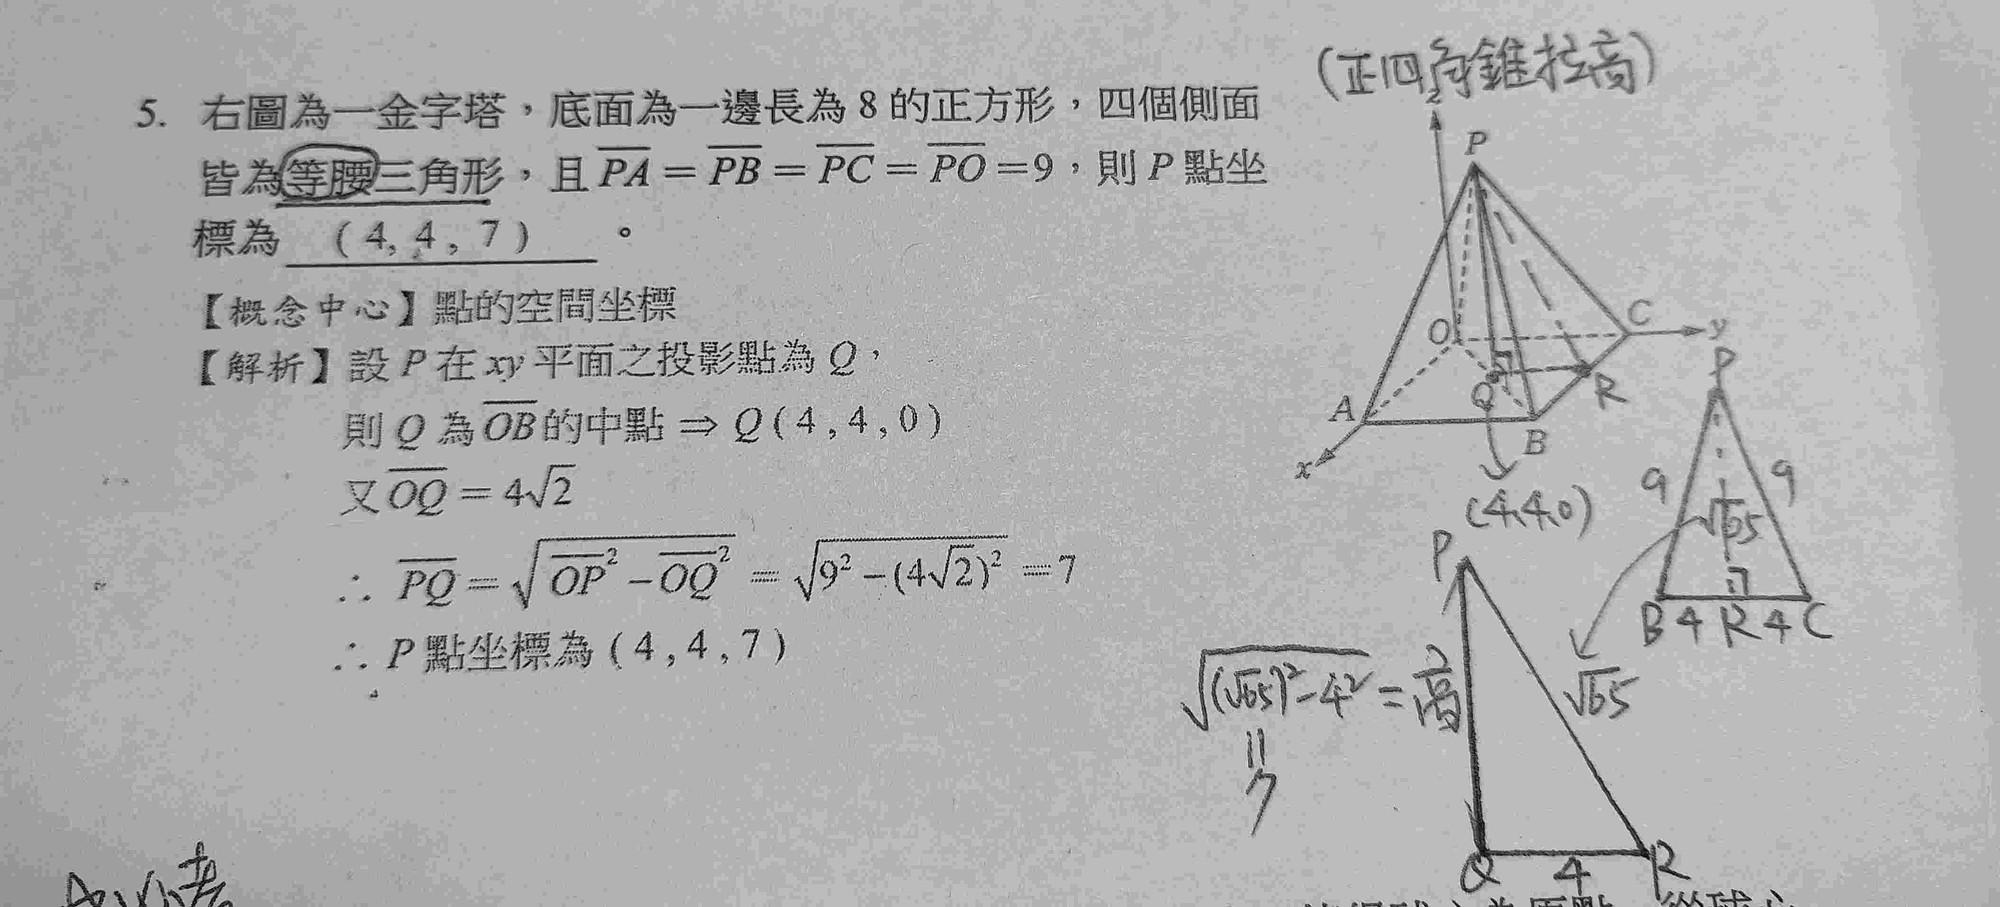 (正四角錐拉高)
5. 右圖為一金字塔，底面為一邊長為 8 的正方形，四個側面
皆為等腰三角形，且 $\overline{PA}=\overline{PB}=\overline{PC}=\overline{PO}=9$，則 P 點坐
標為 (4, 4, 7) 。
【概念中心】點的空間坐標
【解析】設 P 在 xy 平面之投影點為 Q，
則 Q 為 $\overline{OB}$ 的中點 ⇒ Q(4, 4, 0)
又 $\overline{OQ}=4\sqrt{2}$
∴ $\overline{PQ}=\sqrt{\overline{OP}^2-\overline{OQ}^2}=\sqrt{9^2-(4\sqrt{2})^2}=7$
∴ P 點坐標為 (4, 4, 7)
z
P
O
C
y
Q
R
A
B
x
(4,4,0)
P
9
9
√65
B 4 R 4 C
P
$\sqrt{(\sqrt{65})^2-4^2}$ = 高
√65
=
7
Q 4 R